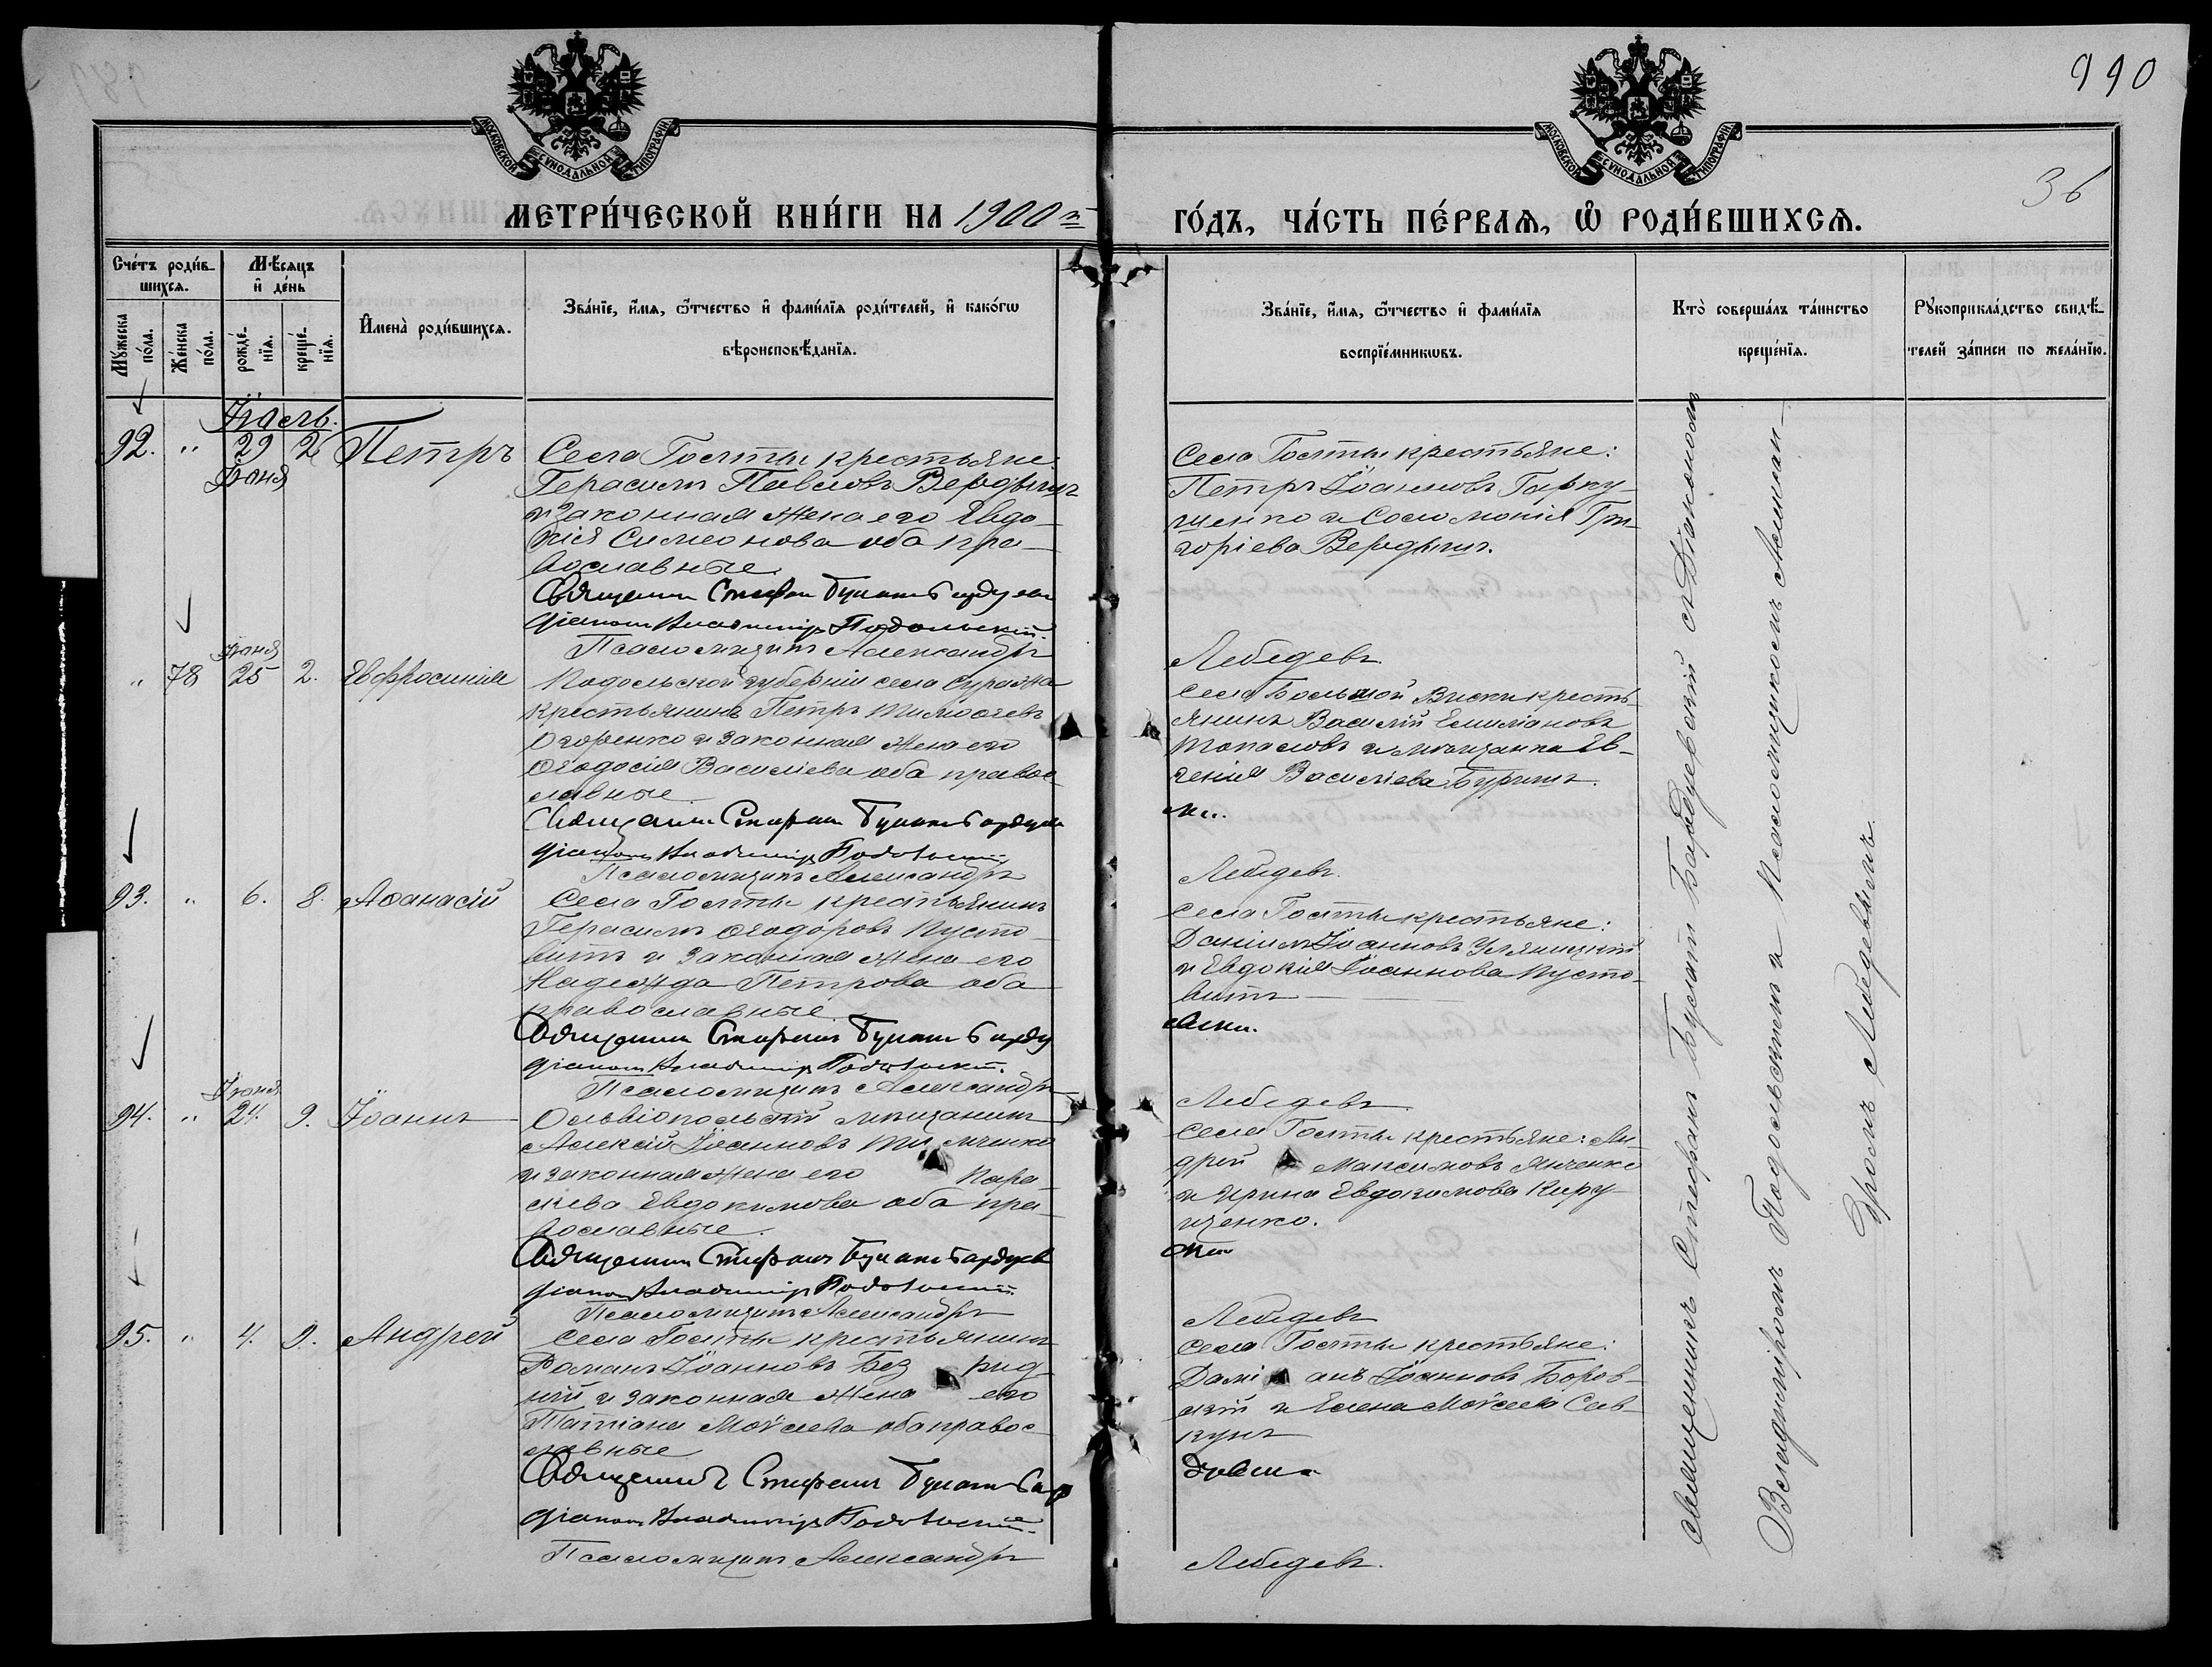 990
МОСКОВСКОЙ СѴНОДАЛЬНОЙ ТИПОГРАФІИ
МОСКОВСКОЙ СѴНОДАЛЬНОЙ ТИПОГРАФІИ
36
МЕТРИ́ЧЕСКОЙ КНИ́ГИ НА 1900 й
ГО́ДЪ, ЧА́СТЬ ПЕ́РВАѦ, Ѡ҆ РОДИ́ВШИХСѦ.
Сче́тъ роди́в-
шихсѧ.
Мѣ́сѧцъ
и҆ де́нь
Мꙋ́жеска по́ла.
Же́нска по́ла.
рожде́-нїѧ.
креще́-нїѧ.
И҆мена̀ роди́вшихсѧ.
Зва́нїе, и҆́мѧ, ѻ҆́тчество и҆ фами́лїѧ роди́телей, и҆ како́гѡ
вѣроисповѣ́данїѧ.
Зва́нїе, и҆́мѧ, ѻ҆́тчество и҆ фами́лїѧ
воспрїе́мникѡвъ.
Кто̀ соверша́лъ та́инство
креще́нїѧ.
Рꙋкоприкла́дство свидѣ́-
телей за́писи по жела́нїю.
Іюль.
92. " 29 2 Петръ
Іюня
Села Гольты крестьяне
Герасимъ Павловъ
и законная жена его Евдо-
кія Симеонова оба пра-
вославные.
Священникъ Стефанъ
діаконъ Владиміръ Подольскій.
Псаломщикъ Александръ
Села Гольты крестьяне:
Петръ Іоанновъ Гарку-
шенко и Соломонія Гри-
горіева
Лебедевъ.
Іюня
" 78 25 2. Евфросинія
Подольской губерніи села
крестьянинъ Петръ Тимофеевъ
и законная жена его
Ѳеодосія Василіева оба правос-
лавные.
Священникъ Стефанъ
діаконъ Владиміръ Подольскій
Псаломщикъ Александръ
Села Большой Виски кресть-
янинъ Василій Емиліановъ
и мѣщанка Ев-
генія Василіева
Лебедевъ.
93. " 6. 8. Аѳанасій
Села Гольты крестьянинъ
Герасимъ Ѳеодоровъ Пусто-
витъ и законная жена его
Надежда Петрова оба
православные.
Священникъ Стефанъ
діаконъ Владиміръ Подольскій.
Псаломщикъ Александръ
Села Гольты крестьяне:
Даніилъ Іоанновъ
и Евдокія Іоаннова Пусто-
витъ
Лебедевъ
Іюня
94. " 24. 9. Іоаннъ
Ольвіопольскій мѣщанинъ
Алексій Іоанновъ
и законная жена его Пара-
скева Евдокимова оба пра-
вославные.
Священникъ Стефанъ
діаконъ Владиміръ Подольскій
Псаломщикъ Александръ
Села Гольты крестьяне: Ан-
дрей Максимовъ Янченко
и Ирина Евдокимова Киру-
щенко.
Лебедевъ
95. " 4. 9. Андрей
Села Гольты крестьянинъ
Романъ Іоанновъ Без рид-
ній и законная жена его
Татіана Моѵсеева оба правос-
лавные
Священникъ Стефанъ
діаконъ Владиміръ Подольскій.
Псаломщикъ Александръ
Села Гольты крестьяне:
Дамі анъ Іоанновъ Боров-
и Елена Моѵсеева Сав-
кунъ
Лебедевъ.
Священникъ Стефанъ с Діакономъ
Владиміромъ Подольскимъ и Псаломщикомъ Александ-
ромъ Лебедевымъ.